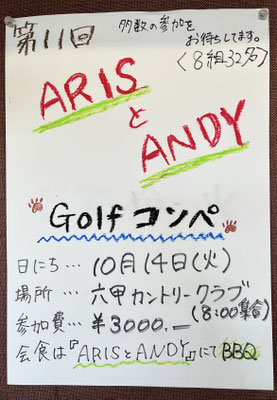 第11回
多数の参加を
お待ちしてます。
(8組32名)
ARIS
と
ANDY
Golf コンペ
日にち…10月14日(火)
場所…六甲カントリークラブ
(8:00集合)
参加費…¥3000.—
会食は『ARISとANDY』にてBBQ